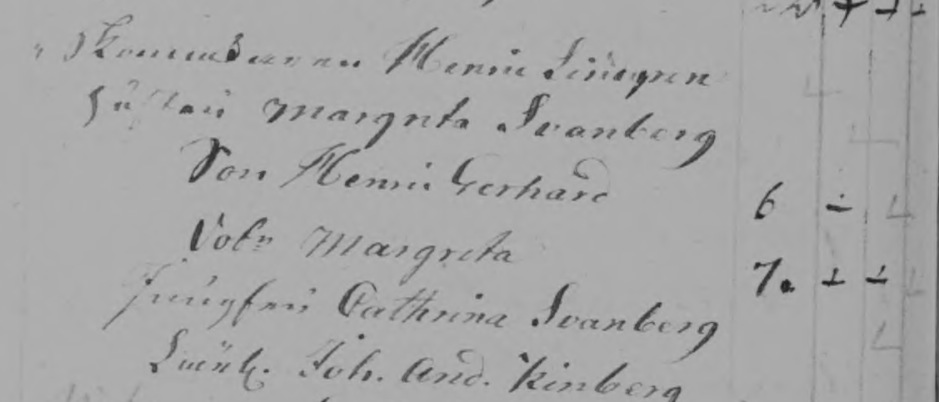 Henric Lindgren
Hustru Margreta Svanberg
Son Henric Gerhard 6
Dotr Margreta 7.
Jungfru Cathrina Svanberg
Joh. And. Kinberg